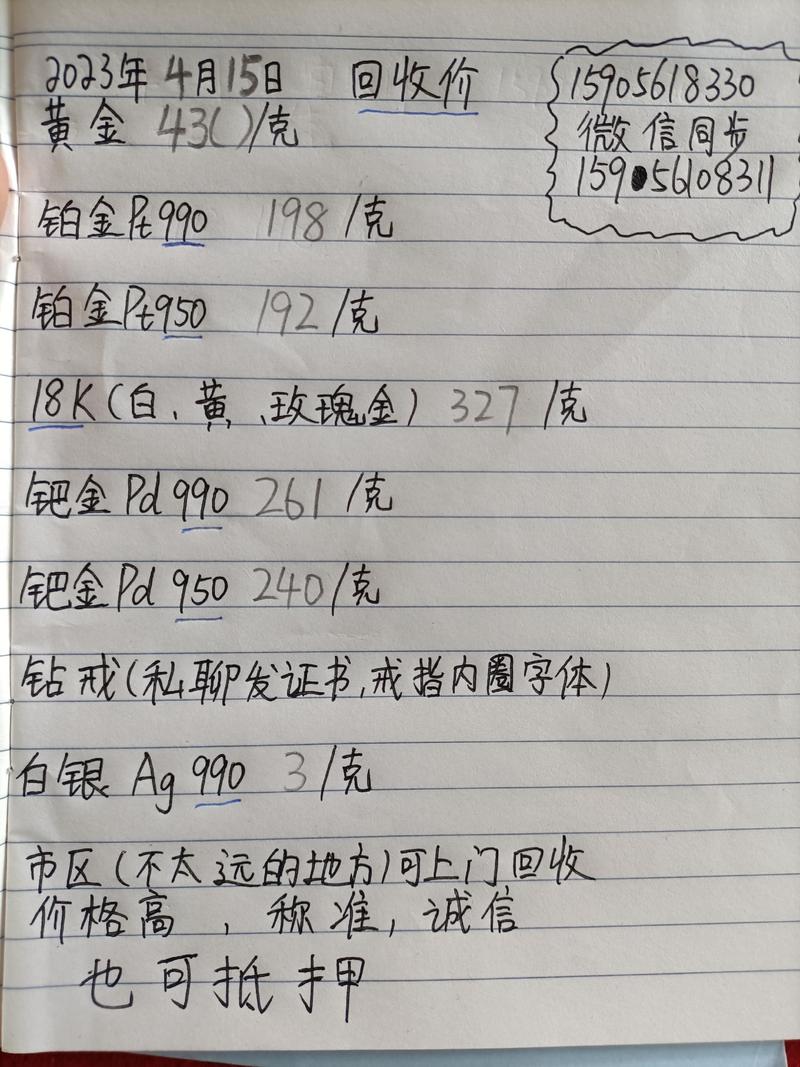 2023年4月15日 回收价
15905618330
微信同步
15956108311
黄金 430/克
铂金Pt990 198/克
铂金Pt950 192/克
18K(白、黄、玫瑰金) 327/克
钯金Pd990 261/克
钯金Pd950 240/克
钻戒(私聊发证书,戒指内圈字体)
白银 Ag990 3/克
市区(不太远的地方)可上门回收
价格高,称准,诚信
也可抵押